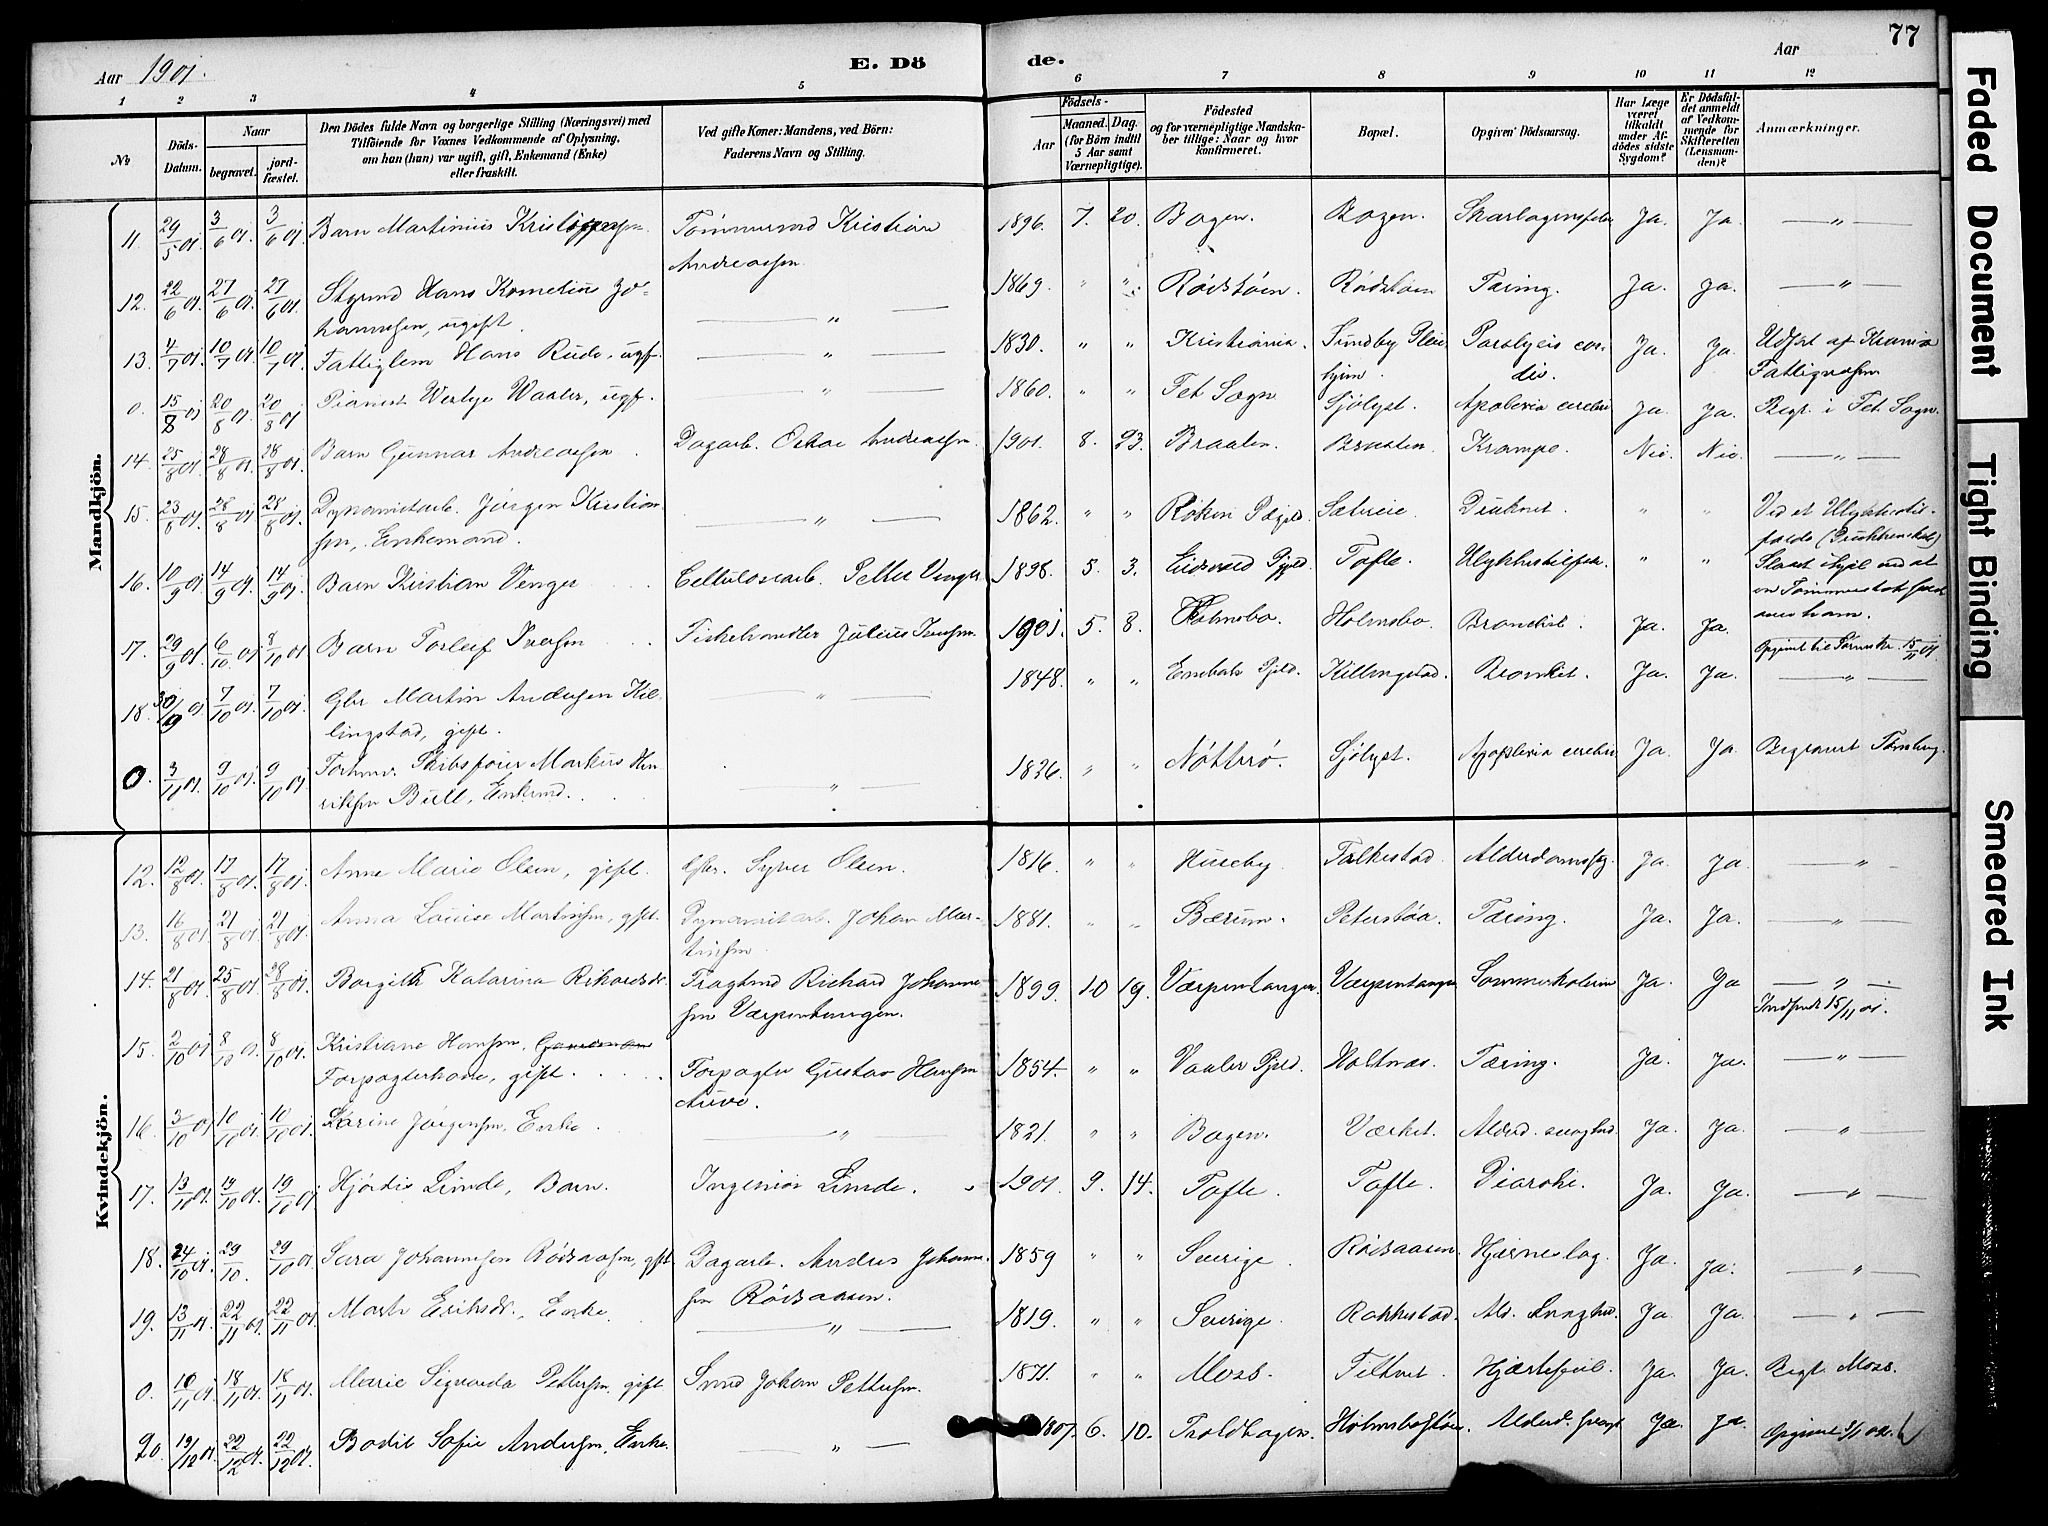 Aar 1901.
E. Dö de.
Aar
77
1 2 3 4 5 6 7 8 9 10 11 12
No
Döds-Datum.
Naar
begravet.
jord-fæstet.
Den Dödes fulde Navn og borgerlige Stilling (Næringsvei) med
Tilföiende for Voxnes Vedkommende af Oplysning,
om han (hun) var ugift, gift, Enkemand (Enke)
eller fraskilt.
Ved gifte Koner: Mandens, ved Börn:
Faderens Navn og Stilling.
Födsels-
Aar
Maaned. Dag.
(for Börn indtil
5 Aar samt
Værnepligtige).
Födested
og for værnepligtige Mandska-
ber tillige: Naar og hvor
konfirmeret.
Bopæl.
Opgiven Dödsaarsag.
Har Læge
været
tilkaldt
under Af-
dödes sidste
Sygdom?
Er Dödsfal-
det anmeldt
af Vedkom-
mende for
Skifteretten
(Lensman-
den)?
Anmærkninger.
Mandkjön.
11. 29/5 01. 3/6 01. 3/6 01. Barn Martinius Tømmermd Kristian Andreassen 1896. 7. 20. Bogen. Bogen. Ja. Ja. — " —
12. 22/6 01. 27/6 01. 27/6 01. Styrmd Hans Kornelius Johannesen, ugift. — " — 1869. " " Rødstøen. Rødstøen Tæring. Ja. Ja. — " —
13. 4/7 01. 10/7 01. 10/7 01. Fattiglem Hans Rude, ugf. — " — 1830. " " Kristiania. Sundby Pleiehjem. Paralysis cordis. Ja. Ja. Udsat af Krania Fattigvæsen
0. 15/8 01. 20/8 01. 20/8 01. Pianist Waaler, ugf. — " — 1860. " " Fet Sogn Sjölyst. Apoplexia cerebri Ja. Ja. Begr. i Fet Sogn.
14. 25/8 01. 28/8 01. 28/8 01. Barn Gunnar Andreassen Dagarb. Oskar Andreassen. 1901. 8. 23. Braaten. Braaten. Krampe. Nei. Nei. — " —
15. 23/8 01. 28/8 01. 28/8 01. Dynamitarb. Jørgen Kristiansen, Enkemand. — " — 1862. " " Røken Pgjeld. Sætreie. Druknet. " " Ved et Ulykkestilfælde (Drukkenskab)
16. 10/9 01. 14/9 01. 14/9 01. Barn Kristian Venger Cellulosearb. Petter Venger 1898. 5. 3. Eidsvold Pgjeld. Tofte. Ulykkestilfælde. " " Slaaet ihjel ved at en Tømmerstok
17. 29/9 01. 6/10 01. 8/10 01. Barn Torleif Iversen Fiskehandler Julius Iversen. 1901. 5. 8. Holmsbo. Holmsbo. Bronchit. Ja. Ja. 15/11 01
18. 30/9 01. 7/10 01. 7/10 01. Gbr Martin Andersen Killingstad, gift. — " — 1848. " " Enebak Pgjeld. Killingstad. Bronkit. Ja. Ja. — " —
0. 3/10 01. 9/10 01. 9/10 01. Forhenv. Skibsfører Markus Henriksen Bull, Enkemd. — " — 1826. " " Nøtterø. Sjölyst. Apoplexia cerebri Ja. Ja. Begravet Tønsberg.
Kvindekjön.
12. 12/8 01. 17/8 01. 17/8 01. Anne Marie Olsen, gift. Efter. Syver Olsen. 1816. " " Huseby. Falkestad. Ja. Ja. "
13. 16/8 01. 21/8 01. 21/8 01. Anna Louise Martinsen, gift. Dynamitarb. Johan Martinsen. 1881. " " Bærum. Peterstøa. Tæring. Ja. Ja. — " —
14. 21/8 01. 25/8 01. 28/8 01. Borgith Katarina Rikardsdr. Fragtmd Richard Johannesen Værpentangen. 1899. 10. 19. Værpentangen. Værpentangen Sommerkolerin Ja. Ja — " — Indsendt 15/11 01.
15. 2/10 01. 8/10 01. 8/10 01. Kristiane Hansen, Forpagterkone, gift. Forpagter Gustav Hansen 1854. " " Vaaler Pgjeld. Holtnæs. Tæring. Ja. Ja. — " —
16. 3/10 01. 10/10 01. 10/10 01. Karine Jørgensen, Enke. " 1821. " " Bogen. Værket. Alderd. svaghed. Ja. Ja. — " —
17. 13/10 01. 19/10 01. 19/10 01. Hjørdis Linde, Barn. Ingeniør Linde. 1901. 9. 14. Tofte. Tofte. Diarohe. Ja. Ja. — " —
18. 24/10 01. 29/10. 29/10 01. Sara Johannesen Rødsaasen, gift Dagarb. Anders Johannesen Rødsaasen. 1859 " " Sverige. Rødsaasen. Hjærneslag. Ja. Ja. — " —
19. 13/11 01. 22/11 01. 22/11 01. Marte Eriksdr., Enke. — " — 1819. " " Sverige. Rakkestad. Ald. svaghed. Ja. Ja. — " —
0. 10/11 01. 18/11 01. 18/11 01. Marie Sigvarda Pettersen, gift Smed Johan Pettersen. 1871. " " Moss. Filtvet. Hjærtefeil. Ja. Ja. Begr. Moss.
20. 19/12 01. 22/12 01. 22/12 01. Bodil Sofie Andersen, Enke. — " — 1807. 6. 10. Troldhogen. Ja. Ja.
Faded Document
Tight Binding
Smeared Ink